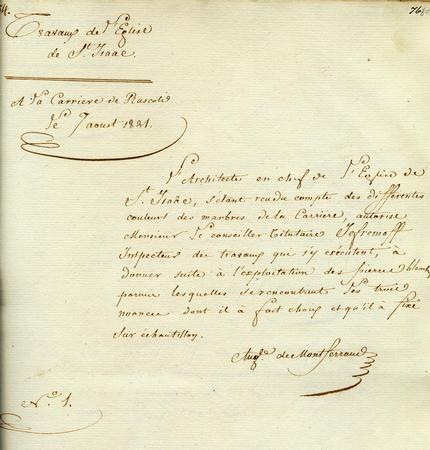 Travaux de l'Eglise
de St. Isaac.
A la Carriere de Ruscoli
le 7 aoust 1821.
l'Architecte en chef de l'Eglise de
St. Isaac, s'étant rendu compte des différentes
couleurs des marbres de la Carriere, autorise
Monsieur le conseiller titulaire Jefremoff
Inspecteur des travaux que s'y exécutent, à
donner suite à l'exploitation des pierres
parmi lesquelles se rencontrent les trois
nuances dont il a fait choix et qu'il a fixé
sur échantillon.
Aug. de Montferrand
No. 1.